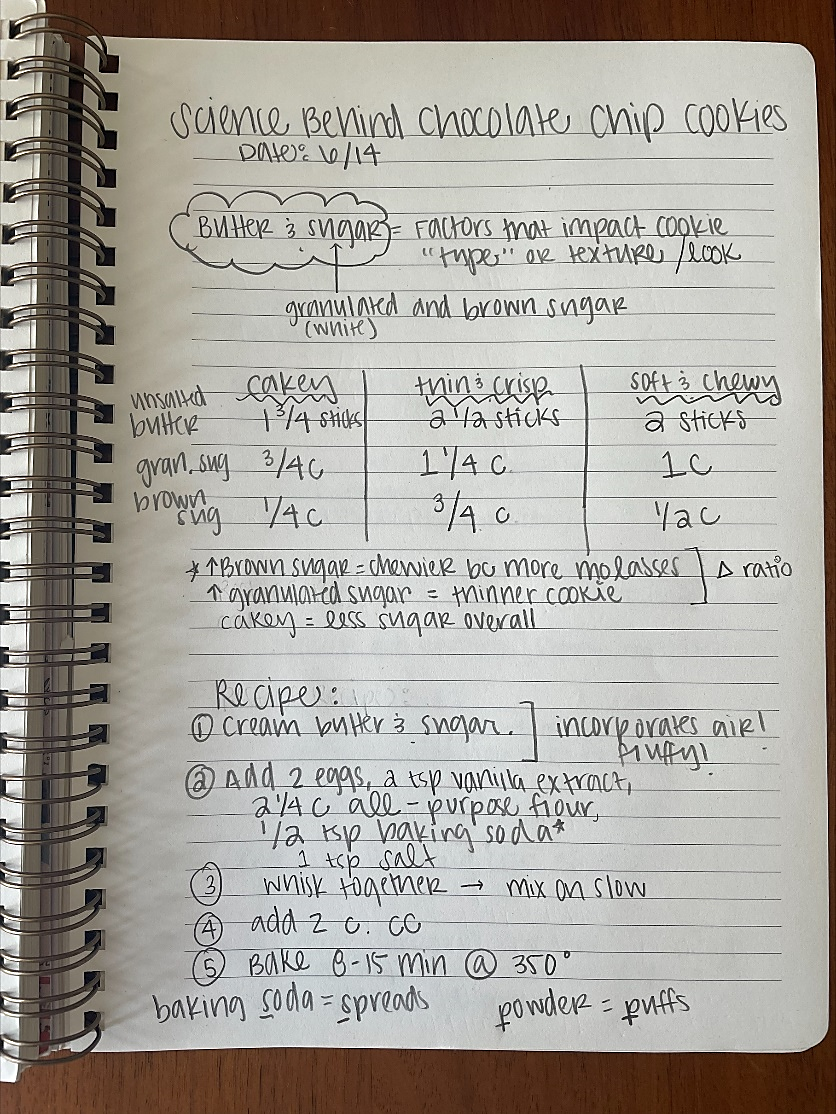 Science Behind Chocolate Chip Cookies
Date: 6/14
Butter & sugar = Factors that impact cookie
"type" or texture/look
granulated and brown sugar
(white)
cakey thin & crisp soft & chewy
unsalted butter 1 3/4 sticks 2 1/2 sticks 2 sticks
gran. sug 3/4 c 1 1/4 c. 1 c
brown sug 1/4 c 3/4 c 1/2 c
* ↑ Brown sugar = chewier bc more molasses ] Δ ratio
↑ granulated sugar = thinner cookie
cakey = less sugar overall
Recipe:
① Cream butter & sugar. ] incorporates air!
fluffy!
② Add 2 eggs, 2 tsp vanilla extract,
2 1/4 c all-purpose flour,
1/2 tsp baking soda*
1 tsp salt
③ whisk together → mix on slow
④ add 2 c. CC
⑤ Bake 8-15 min @ 350°
baking soda = spreads powder = puffs